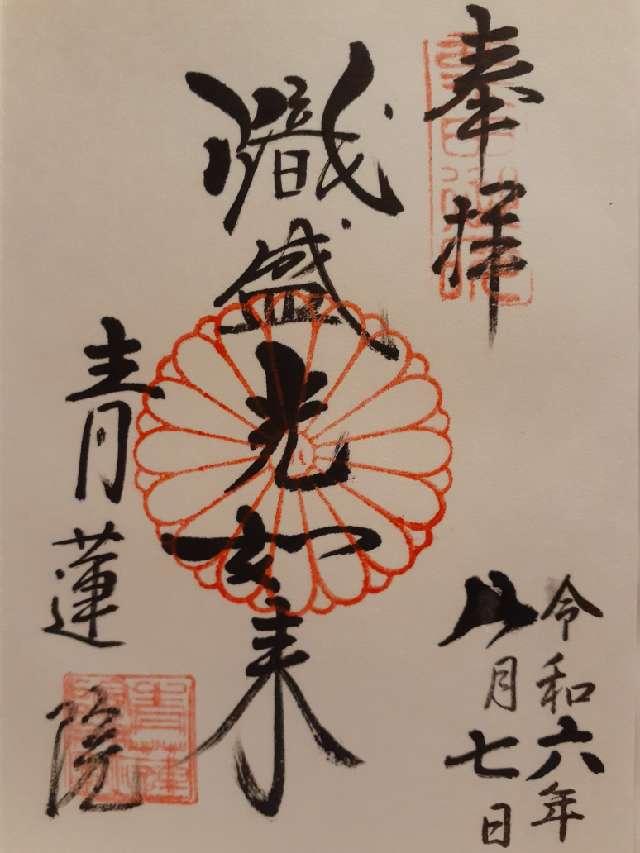 奉拝
熾盛光如来
青蓮院
令和六年
八月七日